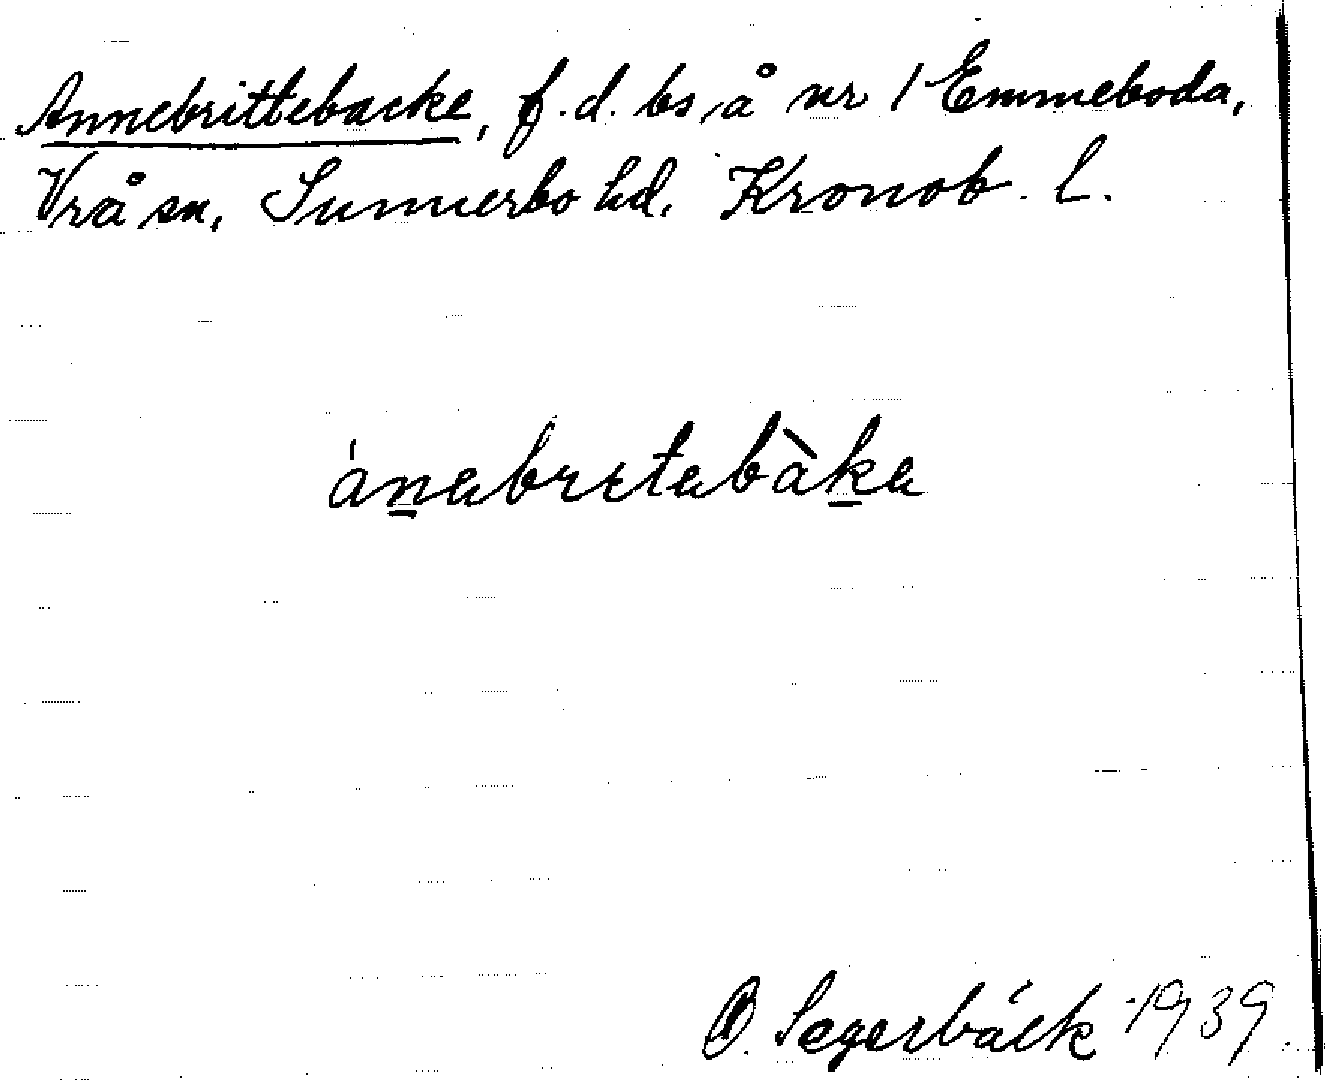 Annebrittebacke, f.d. bs, å nr 1 Emmeboda,
Vrå sn, Sunnerbo hd, Kronob. l.
ánabrɩtabàka
B. Segerbäck 1939.